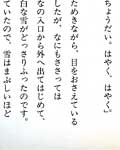 ちょうだい。はやく、はやく。」
ためきながら、目をおさえている
したが、なにもささっては
なの入口から外へ出てはじめて、
白な雪がどっさりふったのです。
ていたので、雪はまぶしいほど